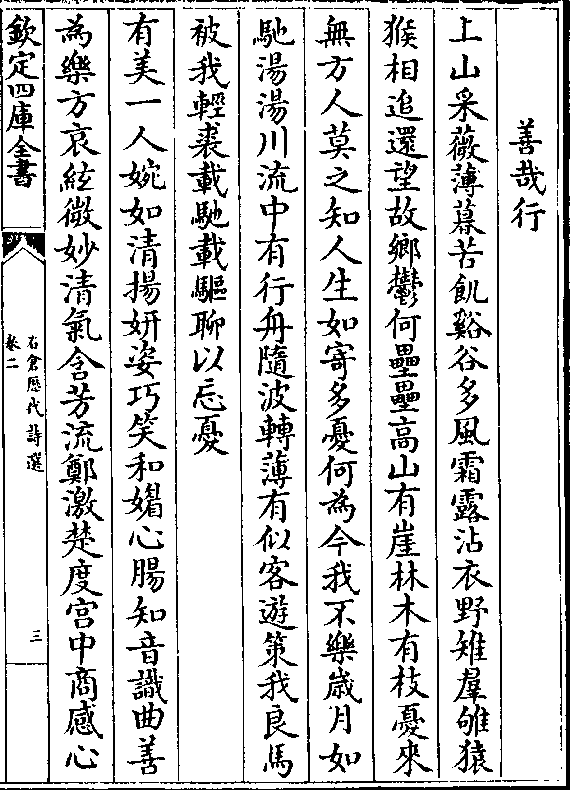 善哉行
上山采薇薄暮苦飢谿谷多風霜露沾衣野雉羣雊猿
猴相追還望故鄉鬱何壘壘高山有崖林木有枝憂來
無方人莫之知人生如寄多憂何為今我不樂歲月如
馳湯湯川流中有行舟隨波轉薄有似客遊策我良馬
被我輕裘載馳載驅聊以忘憂
有美一人婉如清揚妍姿巧笑和媚心腸知音識曲善
為樂方哀絃微妙清氣含芳流鄭激楚度宮中商感心
欽定四庫全書
石倉歷代詩選
卷二
三